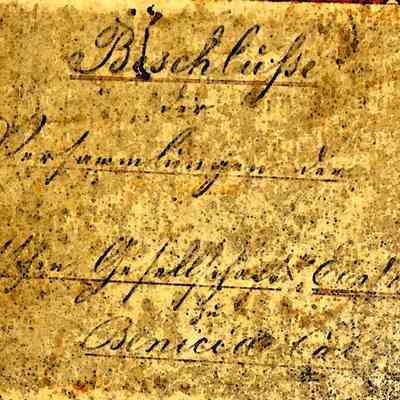 Beschlüsse
der
Versammlungen der
Gesellschaft
zu
Benicia Cal